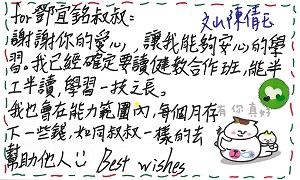 for 鄧宜錦叔叔:
文山陳倩玉
謝謝你的愛心,讓我能夠安心的學
習。我已經確定要讀健教合作班,能半
工半讀,學習一技之長。
我也會在能力範圍內,每個月存
下一些錢,如同叔叔一樣的去
幫助他人 Best wishes
有你真好